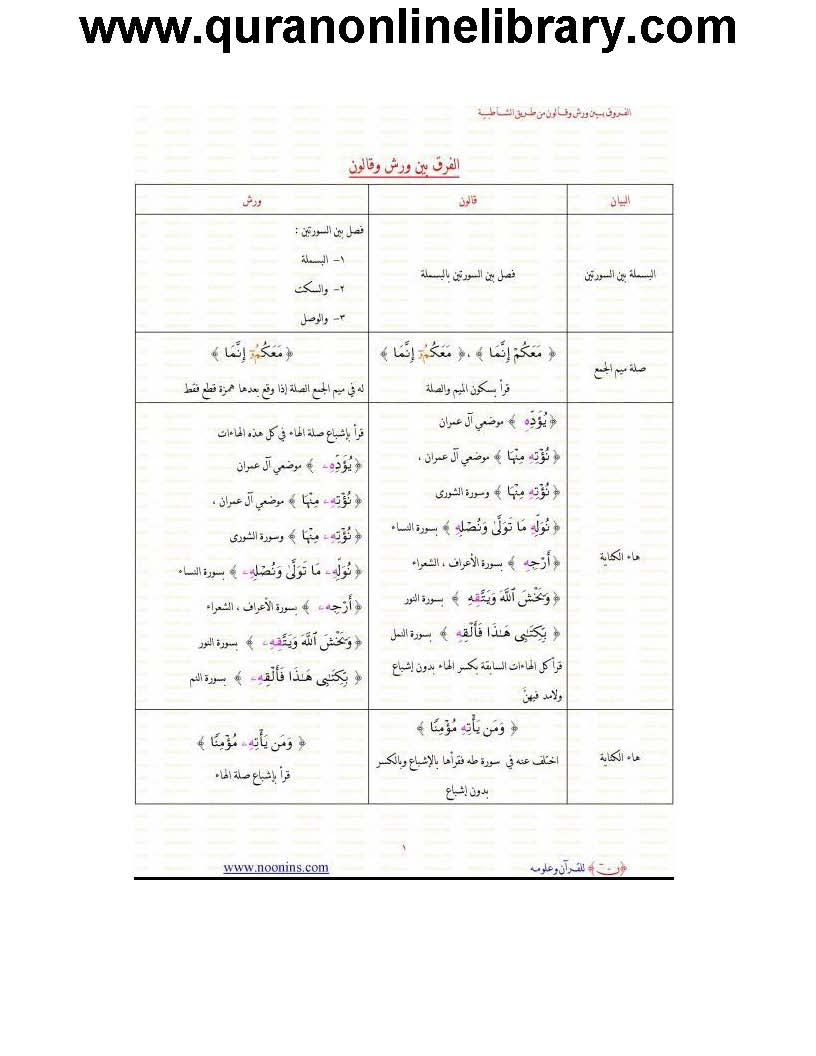 www.quranonlinelibrary.com
الفروق بين ورش وقالون من طريق الشاطبية
الفرق بين ورش وقالون
البيان
قالون
ورش
البسملة بين السورتين
فصل بين السورتين بالبسملة
فصل بين السورتين :
١- البسملة
٢- والسكت
٣- والوصل
صلة ميم الجمع
﴿ مَعَكُمْ إِنَّمَا ﴾ ،﴿ مَعَكُمُۥٓ إِنَّمَا ﴾
قرأ بسكون الميم والصلة
﴿ مَعَكُمُۥٓ إِنَّمَا ﴾
له في ميم الجمع الصلة إذا وقع بعدها همزة قطع فقط
هاء الكناية
﴿ يُؤَدِّهِ ﴾ موضعي آل عمران
﴿ نُؤْتِهِ مِنْهَا ﴾ موضعي آل عمران ،
﴿ نُؤْتِهِ مِنْهَا ﴾ وسورة الشورى
﴿ نُوَلِّهِ مَا تَوَلَّىٰ وَنُصْلِهِ ﴾ بسورة النساء
﴿ أَرْجِهِ ﴾ بسورة الأعراف ، الشعراء
﴿ وَيَخْشَ ٱللَّهَ وَيَتَّقِهِ ﴾ بسورة النور
﴿ بِّكِتَـٰبِى هَـٰذَا فَأَلْقِهِ ﴾ بسورة النمل
قرأ كل الهاءات السابقة بكسر الهاء بدون إشباع
ولا مد فيهنّ
قرأ بإشباع صلة الهاء في كل هذه الهاءات
﴿ يُؤَدِّهِۦ ﴾ موضعي آل عمران
﴿ نُؤْتِهِۦ مِنْهَا ﴾ موضعي آل عمران ،
﴿ نُؤْتِهِۦ مِنْهَا ﴾ وسورة الشورى
﴿ نُوَلِّهِۦ مَا تَوَلَّىٰ وَنُصْلِهِۦ ﴾ بسورة النساء
﴿ أَرْجِهِۦ ﴾ بسورة الأعراف ، الشعراء
﴿ وَيَخْشَ ٱللَّهَ وَيَتَّقِهِۦ ﴾ بسورة النور
﴿ بِّكِتَـٰبِى هَـٰذَا فَأَلْقِهِۦ ﴾ بسورة النم
هاء الكناية
﴿ وَمَن يَأْتِهِ مُؤْمِنًا ﴾
اختلف عنه في سورة طه فقرأها بالإشباع وبالكسر
بدون إشباع
﴿ وَمَن يَأْتِهِۦ مُؤْمِنًا ﴾
قرأ بإشباع صلة الهاء
١
﴿ن﴾ للقرآن وعلومه
www.noonins.com